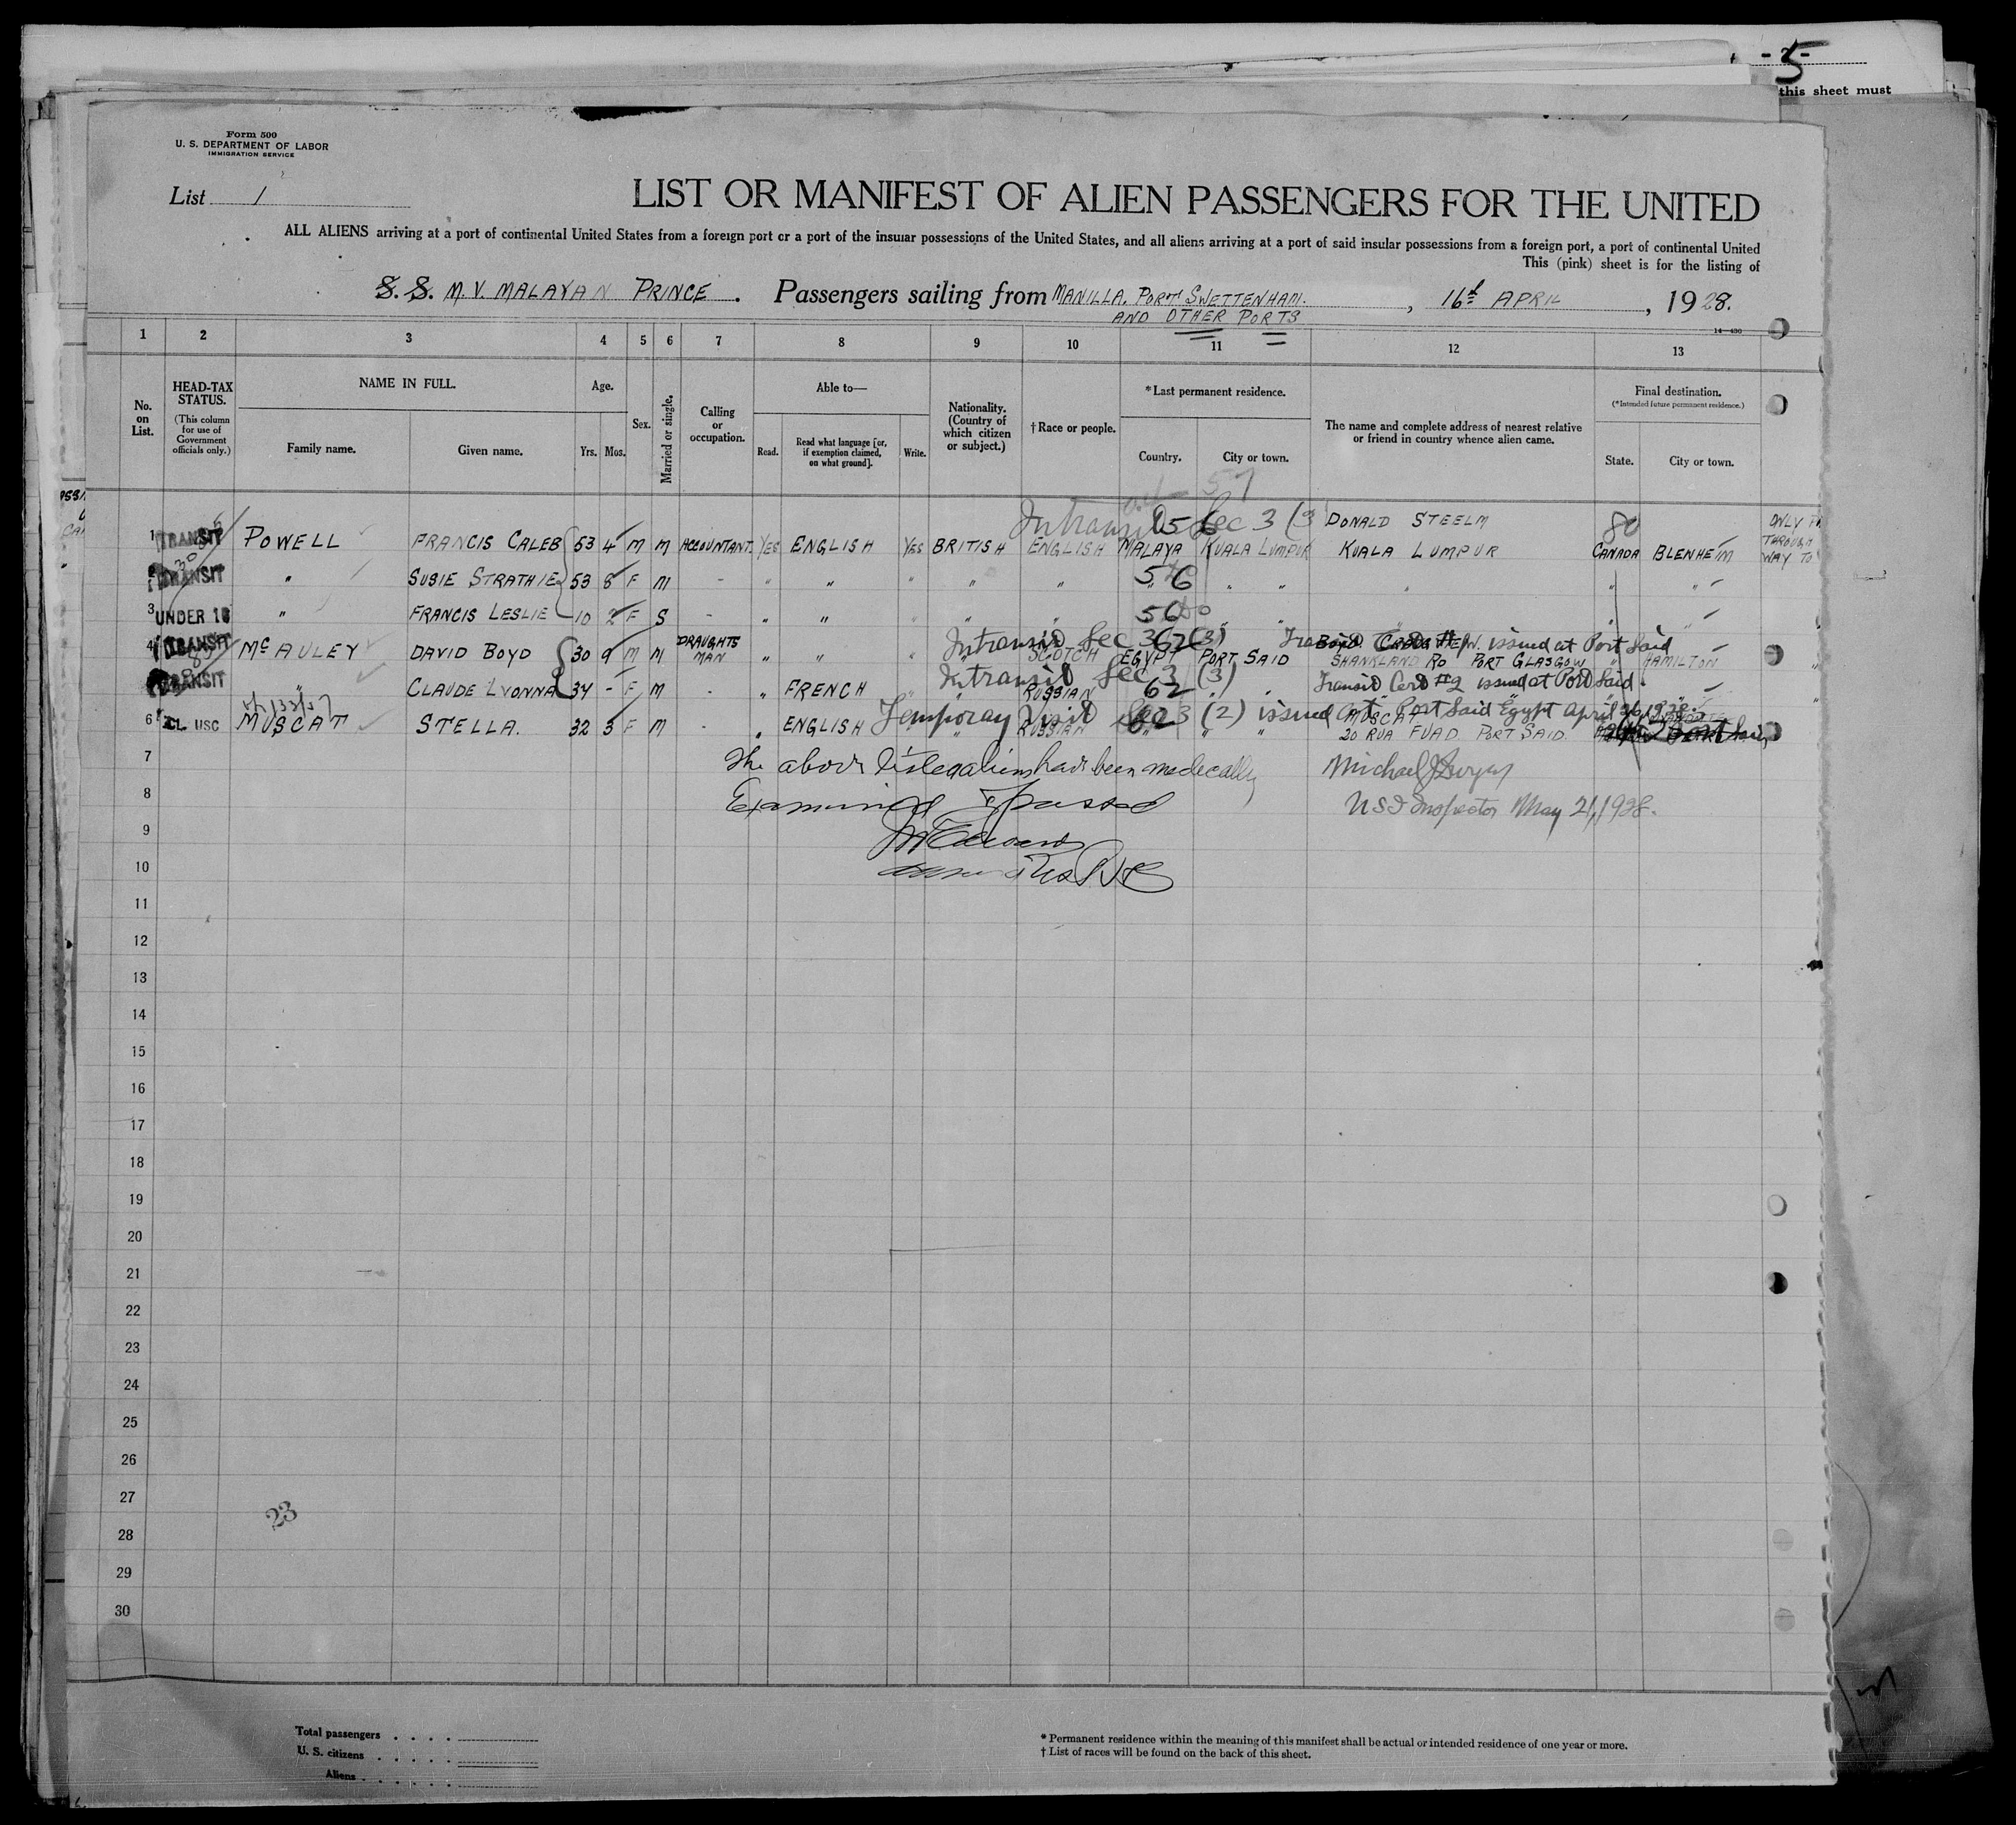 - 5 -
this sheet must
Form 500
U. S. DEPARTMENT OF LABOR
IMMIGRATION SERVICE
List 1
LIST OR MANIFEST OF ALIEN PASSENGERS FOR THE UNITED
ALL ALIENS arriving at a port of continental United States from a foreign port or a port of the insular possessions of the United States, and all aliens arriving at a port of said insular possessions from a foreign port, a port of continental United
This (pink) sheet is for the listing of
S. S. M.V. MALAYAN PRINCE. Passengers sailing from MANILLA. PORT SWETTENHAM. , 16th APRIL , 1928.
AND OTHER PORTS
14-430
1 2 3 4 5 6 7 8 9 10 11 12 13
No. on List.
HEAD-TAX STATUS.
(This column for use of Government officials only.)
NAME IN FULL.
Family name. Given name.
Age.
Yrs. Mos.
Sex.
Married or single.
Calling or occupation.
Able to—
Read. Read what language [or, if exemption claimed, on what ground]. Write.
Nationality. (Country of which citizen or subject.)
† Race or people.
* Last permanent residence.
Country. City or town.
The name and complete address of nearest relative or friend in country whence alien came.
Final destination.
(*Intended future permanent residence.)
State. City or town.
57
In transit Sec 3 (3 DONALD STEELM 80 ONLY
1 TRANSIT POWELL FRANCIS CALEB 53 4 M M ACCOUNTANT. YES ENGLISH YES BRITISH ENGLISH MALAYA KUALA LUMPUR KUALA LUMPUR CANADA BLENHEIM THROUGH
WAY TO
TRANSIT " SUSIE STRATHIE 53 8 F M - " " " " " 56 " " " "
3 UNDER 16 " FRANCIS LESLIE 10 2 F S - " " " " " 56 " " " "
In transit Sec 3 (3) 62 issued at Port Said
4 TRANSIT McAULEY DAVID BOYD 30 9 M M DRAUGHTS MAN " " " " SCOTCH EGYPT PORT SAID SHANKLAND RD PORT GLASGOW " HAMILTON
In transit Sec 3 (3) Transit Cert #2 issued at Port Said
TRANSIT " CLAUDE LYONNA 34 - F M - " FRENCH " " RUSSIAN 62 " "
Temporay Visit Sec 3 (2) issued at Port Said Egypt April 26, 1928.
6 CL. USC MUSCAT STELLA. 32 3 F M - " ENGLISH " " RUSSIAN 62 " " MUSCAT
20 RUA FUAD PORT SAID.
7 The above listed aliens have been medically
8 Examined & passed
Michael J Dwyer
USI Inspector May 21, 1928.
9
10
11
12
13
14
15
16
17
18
19
20
21
22
23
24
25
26
27
28
29
30
23
Total passengers . . . .
U. S. citizens . . . . .
Aliens . . . . . .
* Permanent residence within the meaning of this manifest shall be actual or intended residence of one year or more.
† List of races will be found on the back of this sheet.